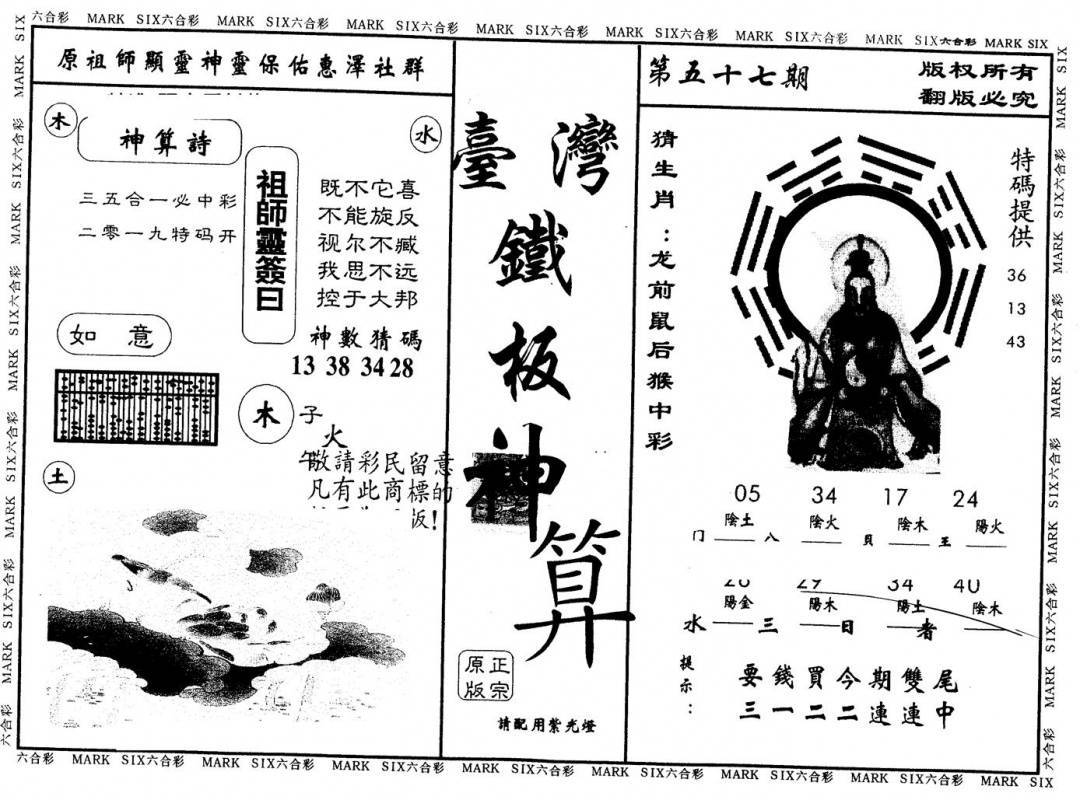 六合彩 MARK SIX六合彩 MARK SIX六合彩 MARK SIX六合彩 MARK SIX六合彩 MARK SIX六合彩 MARK SIX六合彩 MARK SIX六合彩 MARK SIX
原祖師顯靈神靈保佑惠澤社群
木
神算詩
水
三五合一必中彩
二零一九特码开
祖師靈簽曰
既不它喜
不能旋反
视尔不臧
我思不远
控于大邦
神數猜碼
13 38 34 28
如意
木
子
火
午
敬請彩民留意
凡有此商標的
版!
土
臺灣
鐵
板
神
算
正宗
原版
請配用紫光燈
第五十七期
版权所有
翻版必究
猜生肖:龙前鼠后猴中彩
特碼提供
36
13
43
05 34 17 24
陰土 陰火 陰木 陽火
门 八 貝 王
20 29 34 40
陽金 陽木 陽土 陰木
水 三 日 者
提示:
要錢買今期雙尾
三一二二連連中
六合彩 MARK SIX六合彩 MARK SIX六合彩 MARK SIX六合彩 MARK SIX六合彩 MARK SIX六合彩 MARK SIX六合彩 MARK SIX六合彩 MARK SIX